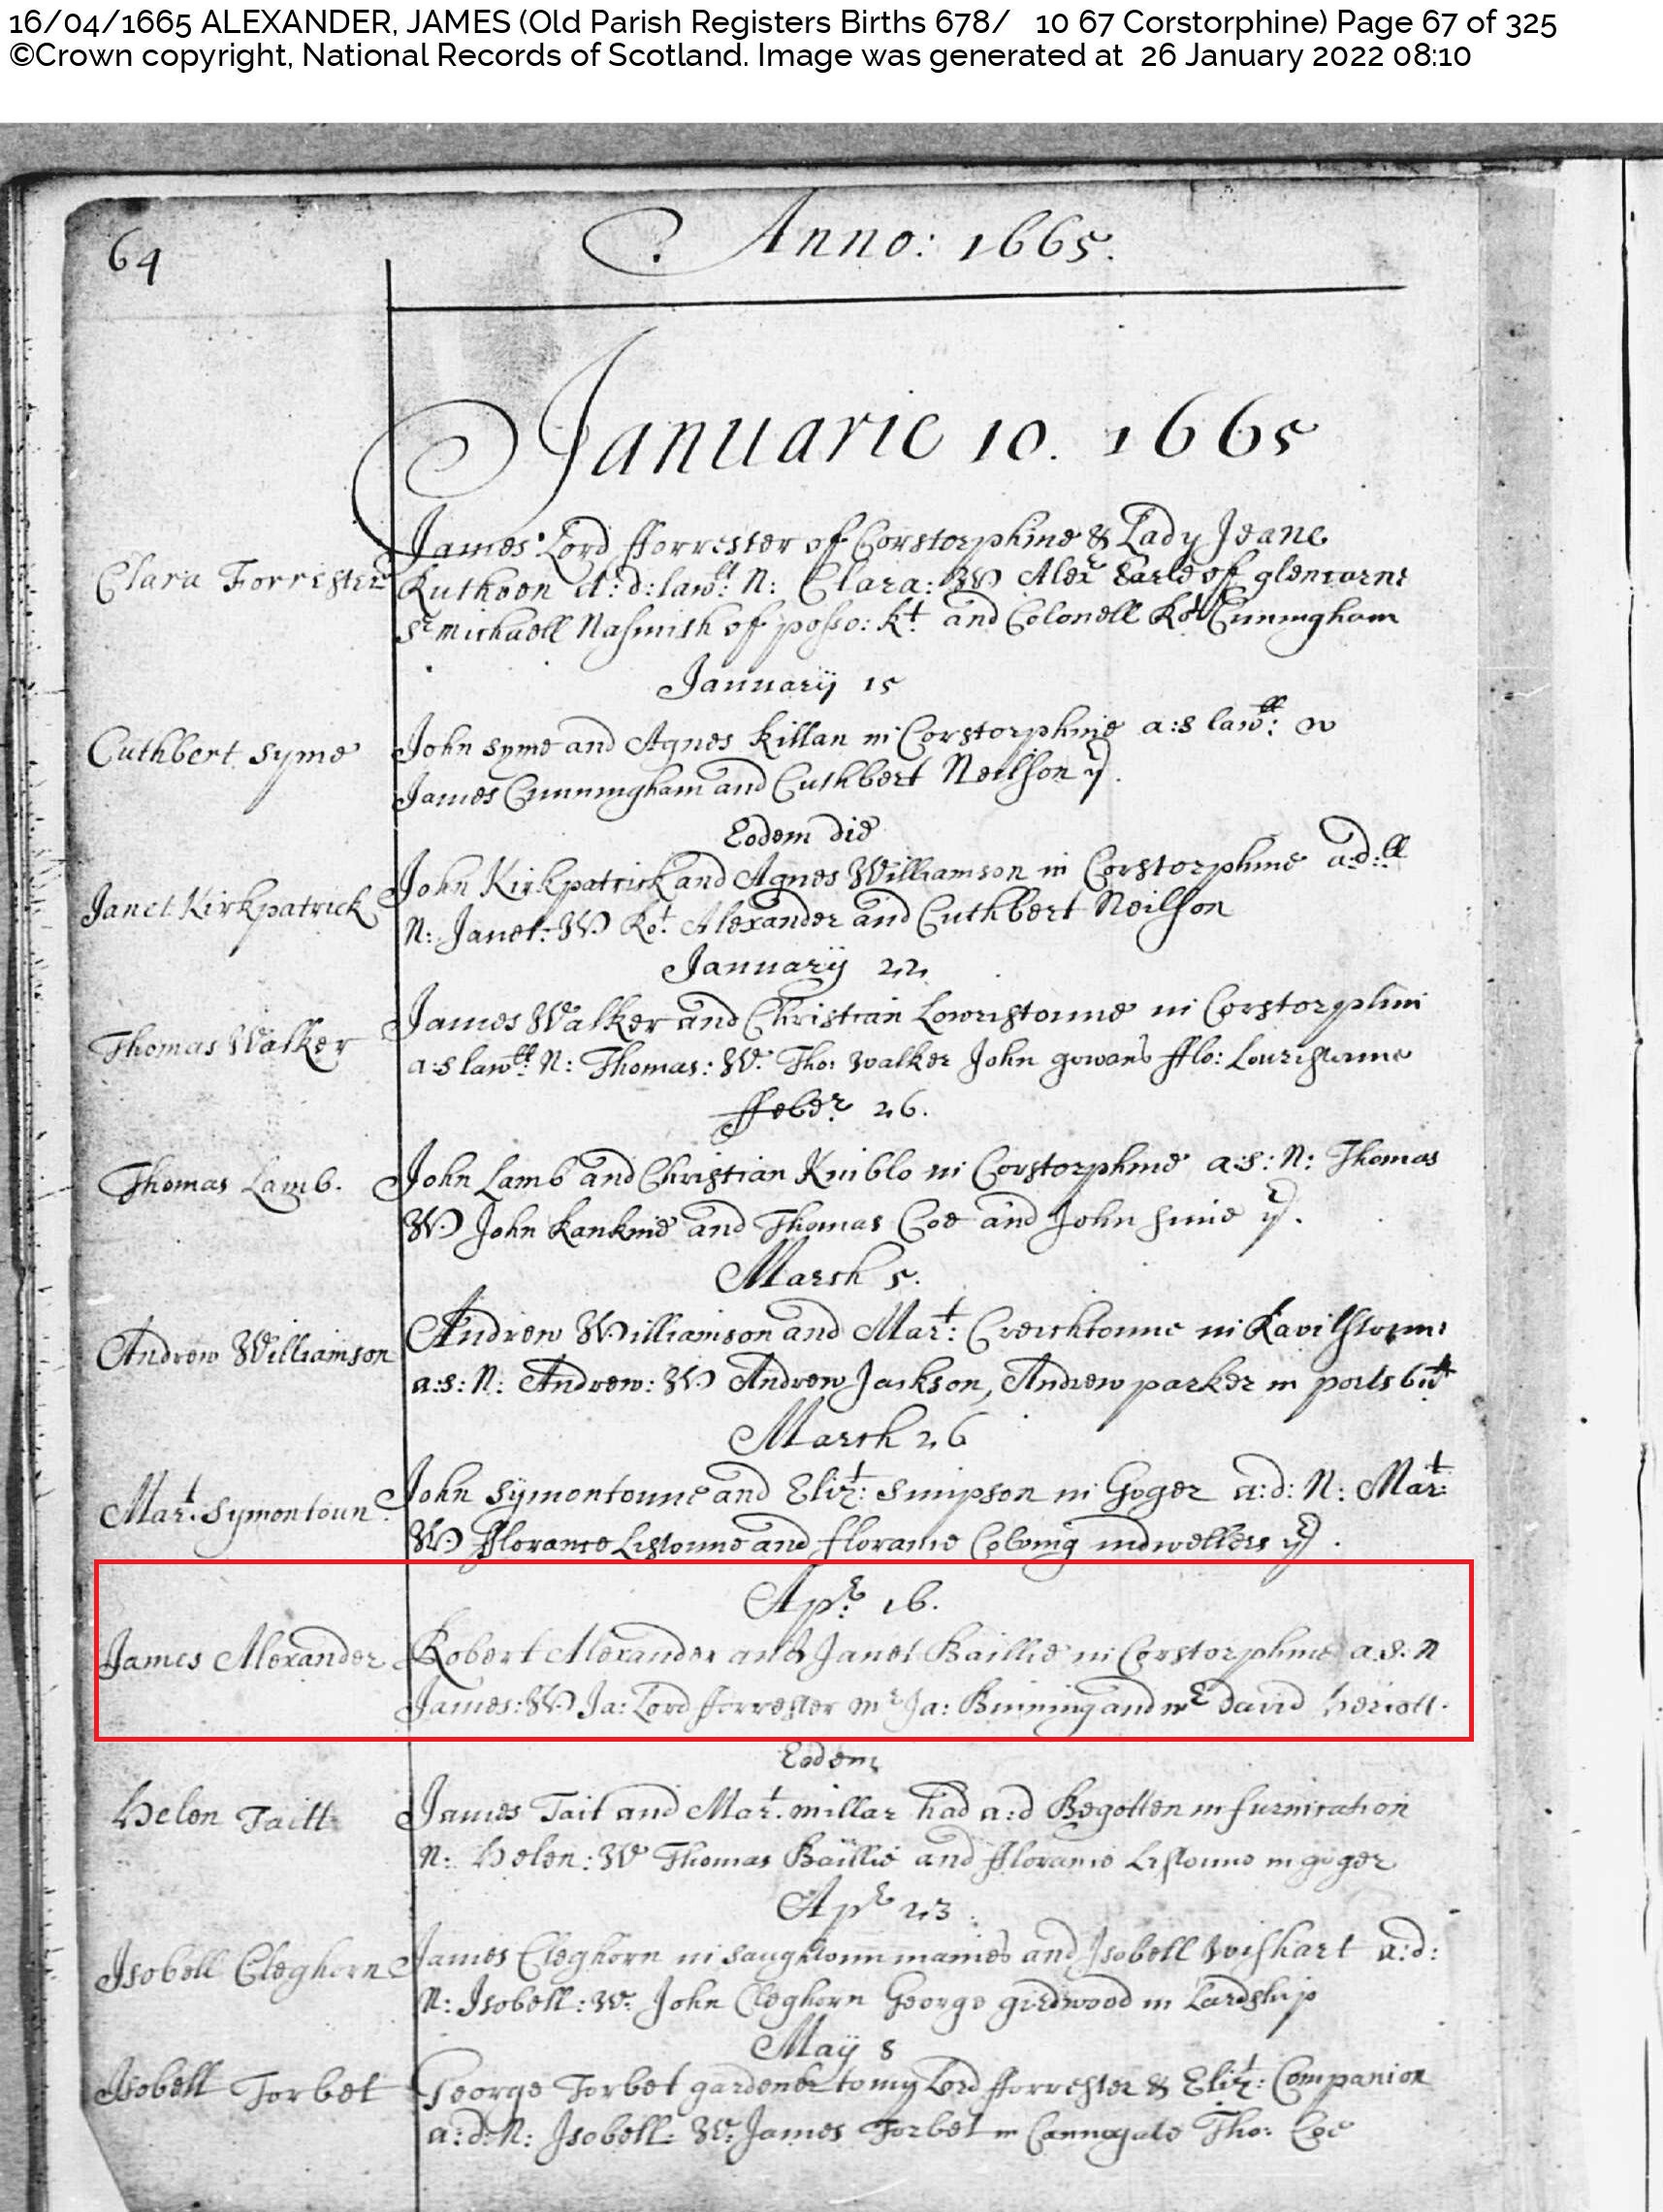 16/04/1665 ALEXANDER, JAMES (Old Parish Registers Births 678/ 10 67 Corstorphine) Page 67 of 325
©Crown copyright, National Records of Scotland. Image was generated at 26 January 2022 08:10
64
Anno: 1665.
Januarie 10. 1665
Clara Forrester
James Lord fforrester of Corstorphine & Lady Jeane
Ruthven A: d: lawll: N: Clara: W Alexr Earle of glencarne
Sr michaell Nasmith of posso: kt. and Colonell Rot Cuningham
Januarij 15
Cuthbert Syme
John Syme and Agnes Killan in Corstorphine a:s lawll: w
James Cunningham and Cuthbert Neilson yr.
Eodem die
Janet Kirkpatrick
John Kirkpatrick and Agnes Williamson in Corstorphine a:d:ll
N: Janet: W Rot Alexander and Cuthbert Neilson
Januarij 22
Thomas Walker
James Walker and Christian Lowristoune in Corstorphin
a:s lawll: N: Thomas: W: Tho: Walker John gowans fflo: Louristoune
ffebr 26.
Thomas Lamb.
John Lamb and Christian Kniblo in Corstorphine a:s: N: Thomas
W John Rankine and Thomas Coe and John yr.
March 5.
Andrew Williamson
Andrew Williamson and Mart: Creichtoune in Ravilstoune
a:s: N: Andrew: W Andrew Jackson, Andrew parker in
March 26
Mart. Symontoun
John Symontoune and Elizt: Simpson in Goger a:d: N: Mart:
W fflorance Listoune and florance indwellers yr.
Apr: 16.
James Alexander
Robert Alexander and Janet Baillie in Corstorphine a.s: N
James: W Ja: Lord fforrester mr Ja: Binning and mr David Heriott.
Eodem
Helen Taitt
James Tait and Mart. millar had a:d Begotten in furnication
N: Helen: W Thomas Baillie and fflorance Listoune in goger
Apr 23
Isobell Cleghorn
James Cleghorn in Saughtoun and Isobell Wishart a:d:
N: Isobell: W: John Cleghorn George girdwood in Lardship
May 8
Isobell Torbet
George Torbet gardener to my Lord fforrester & Elizt: Companion
a:d: N: Isobell: W: James Torbet in Cannogate Tho: Coe